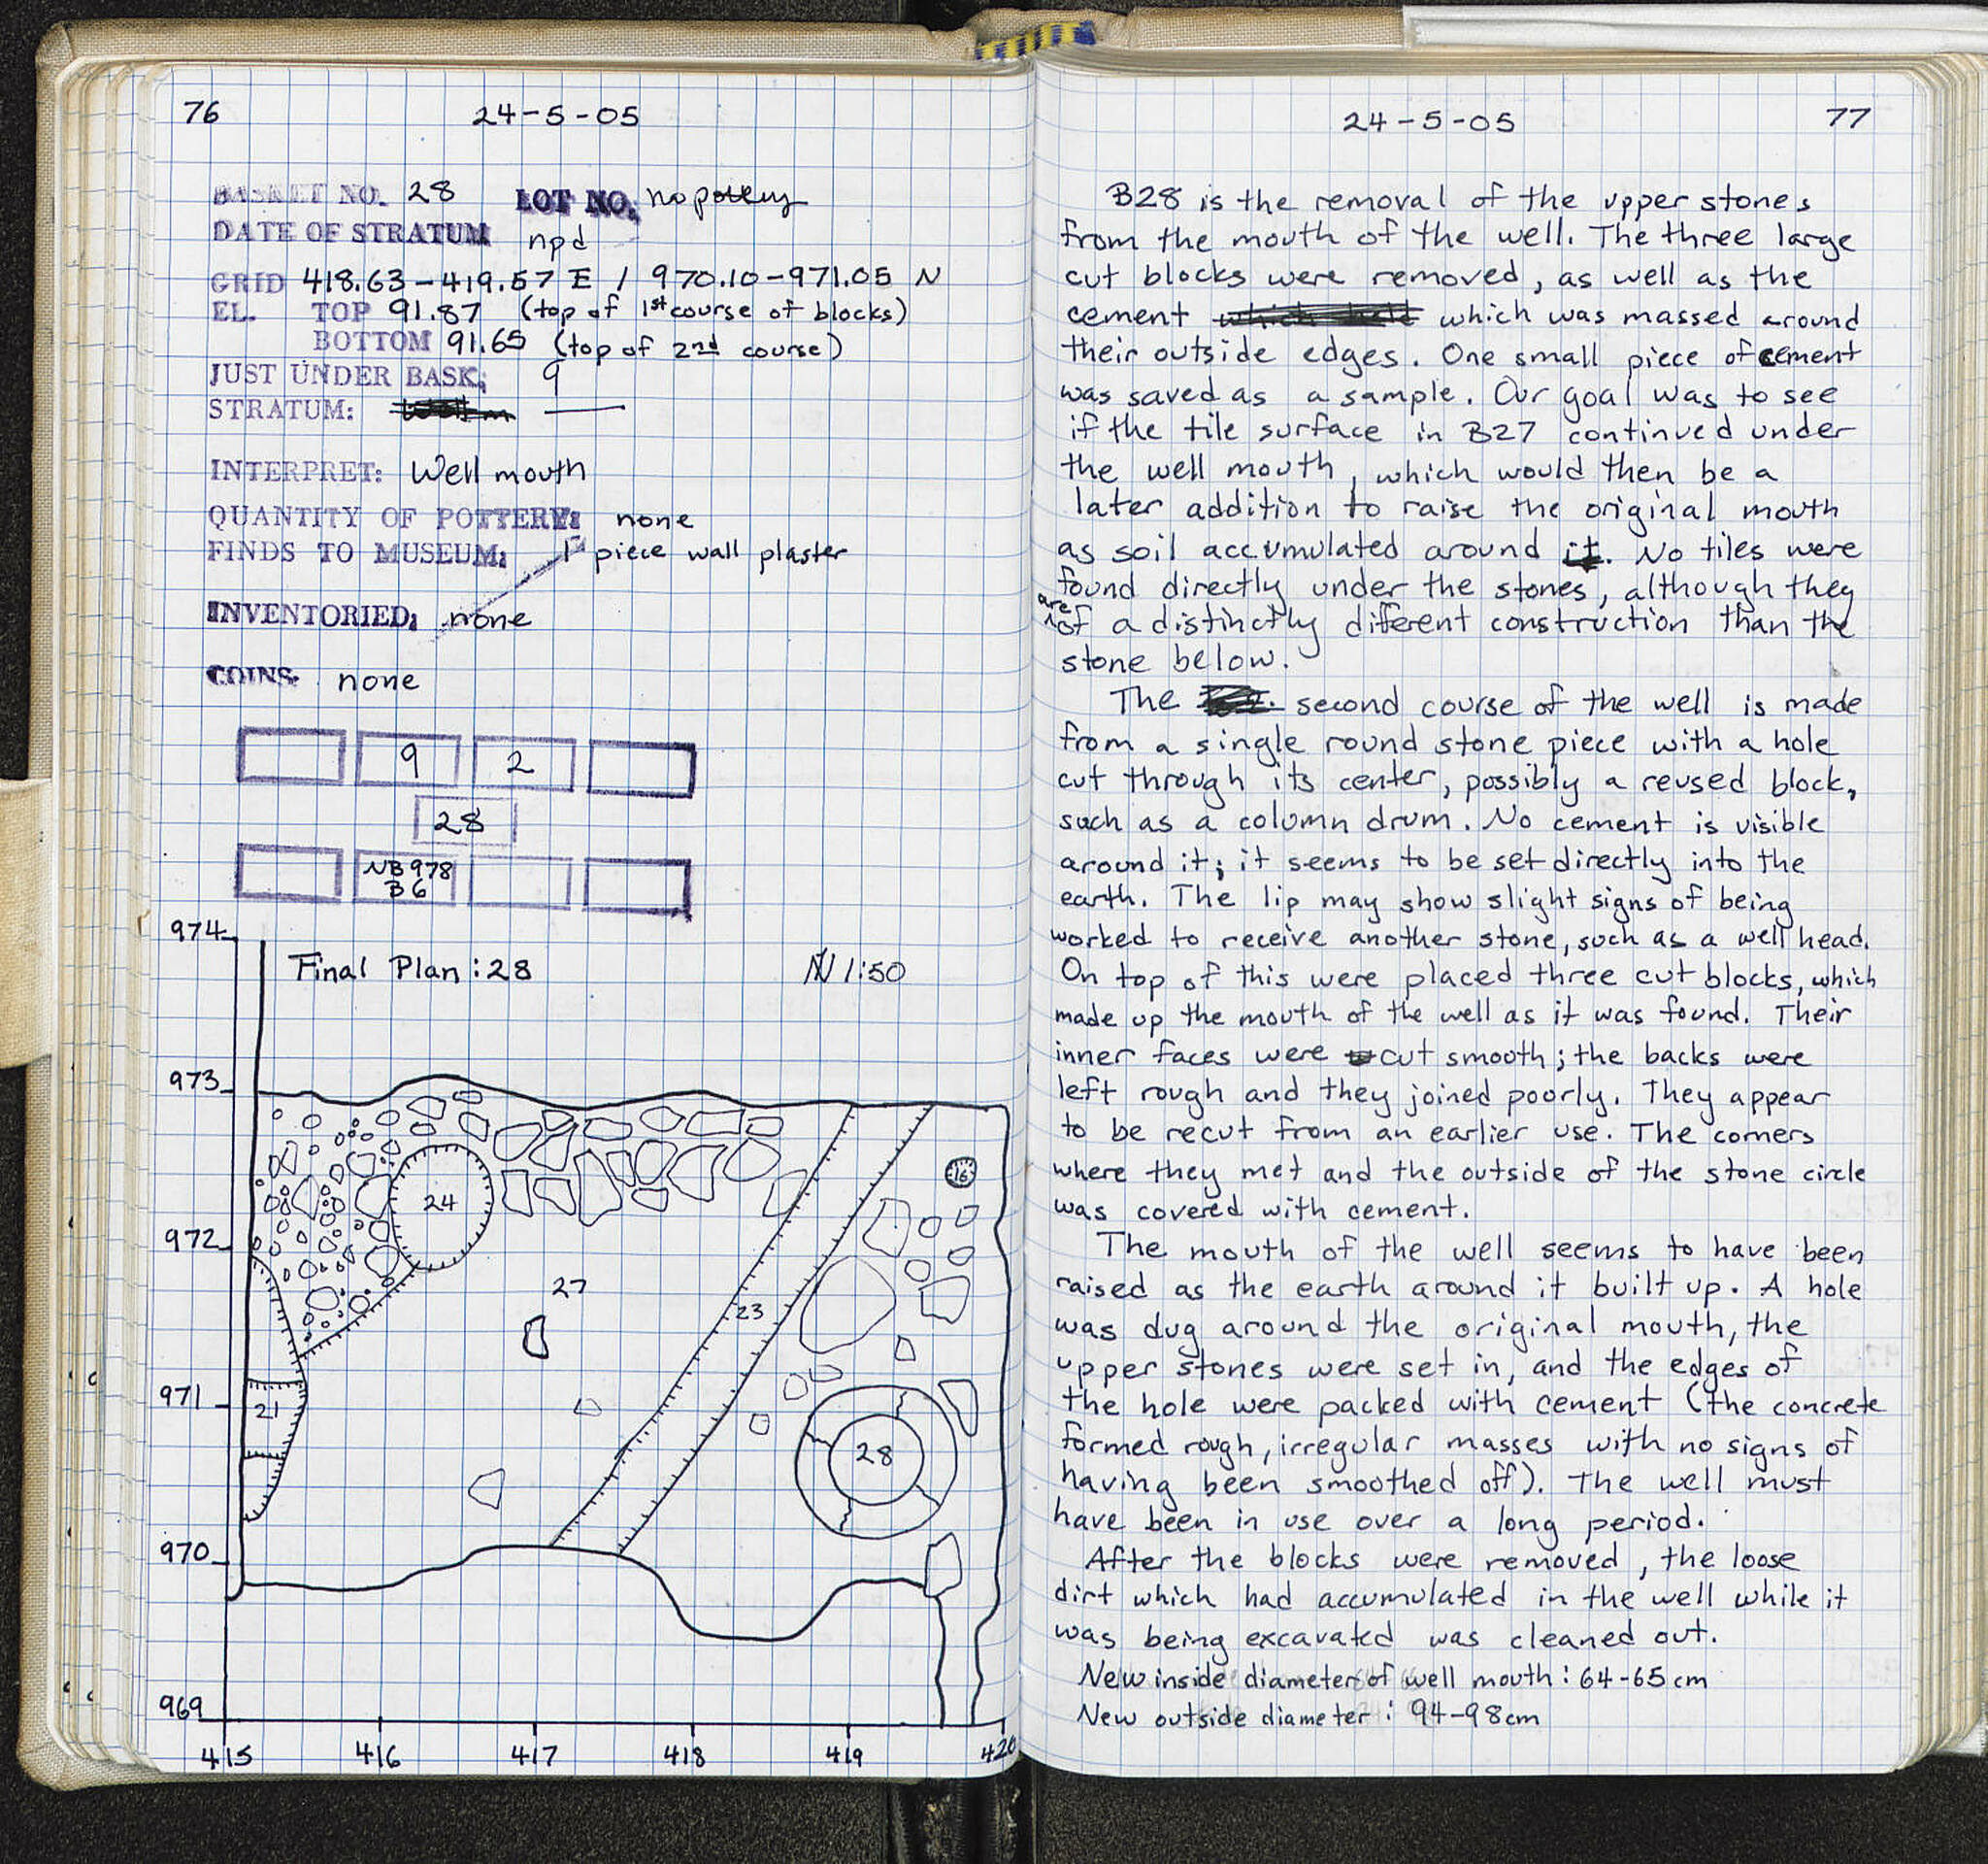 76
24-5-05
BASKET NO. 28 LOT NO. no pottery
DATE OF STRATUM npd
GRID 418.63-419.57 E / 970.10-971.05 N
EL. TOP 91.87 (top of 1st course of blocks)
BOTTOM 91.65 (top of 2nd course)
JUST UNDER BASK. 9
STRATUM: —
INTERPRET: Well mouth
QUANTITY OF POTTERY: none
FINDS TO MUSEUM: 1 piece wall plaster
INVENTORIED: none
COINS. none
9 2
28
NB978
B6
974
Final Plan: 28 N 1:50
973
16
24
972
27
23
971
21
28
970
969
415 416 417 418 419 420
24-5-05
77
B28 is the removal of the upper stones
from the mouth of the well. The three large
cut blocks were removed, as well as the
cement which held which was massed around
their outside edges. One small piece of cement
was saved as a sample. Our goal was to see
if the tile surface in B27 continued under
the well mouth, which would then be a
later addition to raise the original mouth
as soil accumulated around it. No tiles were
found directly under the stones, although they
are of a distinctly different construction than the
stone below.
The second course of the well is made
from a single round stone piece with a hole
cut through its center, possibly a reused block,
such as a column drum. No cement is visible
around it; it seems to be set directly into the
earth. The lip may show slight signs of being
worked to receive another stone, such as a well head.
On top of this were placed three cut blocks, which
made up the mouth of the well as it was found. Their
inner faces were cut smooth; the backs were
left rough and they joined poorly. They appear
to be recut from an earlier use. The corners
where they met and the outside of the stone circle
was covered with cement.
The mouth of the well seems to have been
raised as the earth around it built up. A hole
was dug around the original mouth, the
upper stones were set in, and the edges of
the hole were packed with cement (the concrete
formed rough, irregular masses with no signs of
having been smoothed off). The well must
have been in use over a long period.
After the blocks were removed, the loose
dirt which had accumulated in the well while it
was being excavated was cleaned out.
New inside diameter of well mouth: 64-65 cm
New outside diameter: 94-98cm